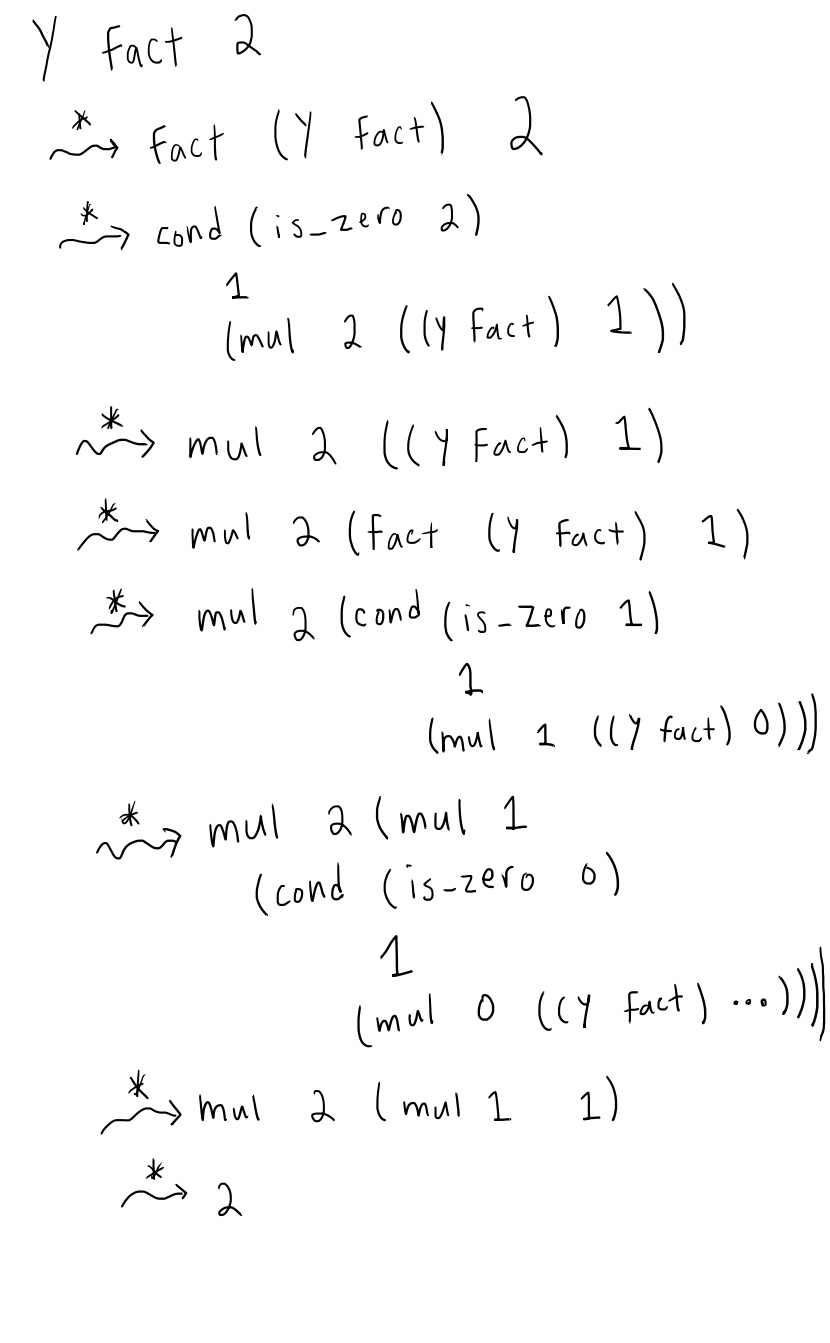 Y fact 2
⇝* fact (Y fact) 2
⇝* cond (is_zero 2)
1
(mul 2 ((Y fact) 1))
⇝* mul 2 ((Y fact) 1)
⇝* mul 2 (fact (Y fact) 1)
⇝* mul 2 (cond (is_zero 1)
1
(mul 1 ((Y fact) 0)))
⇝* mul 2 (mul 1
(cond (is_zero 0)
1
(mul 0 ((Y fact) ...))))
⇝* mul 2 (mul 1 1)
⇝* 2